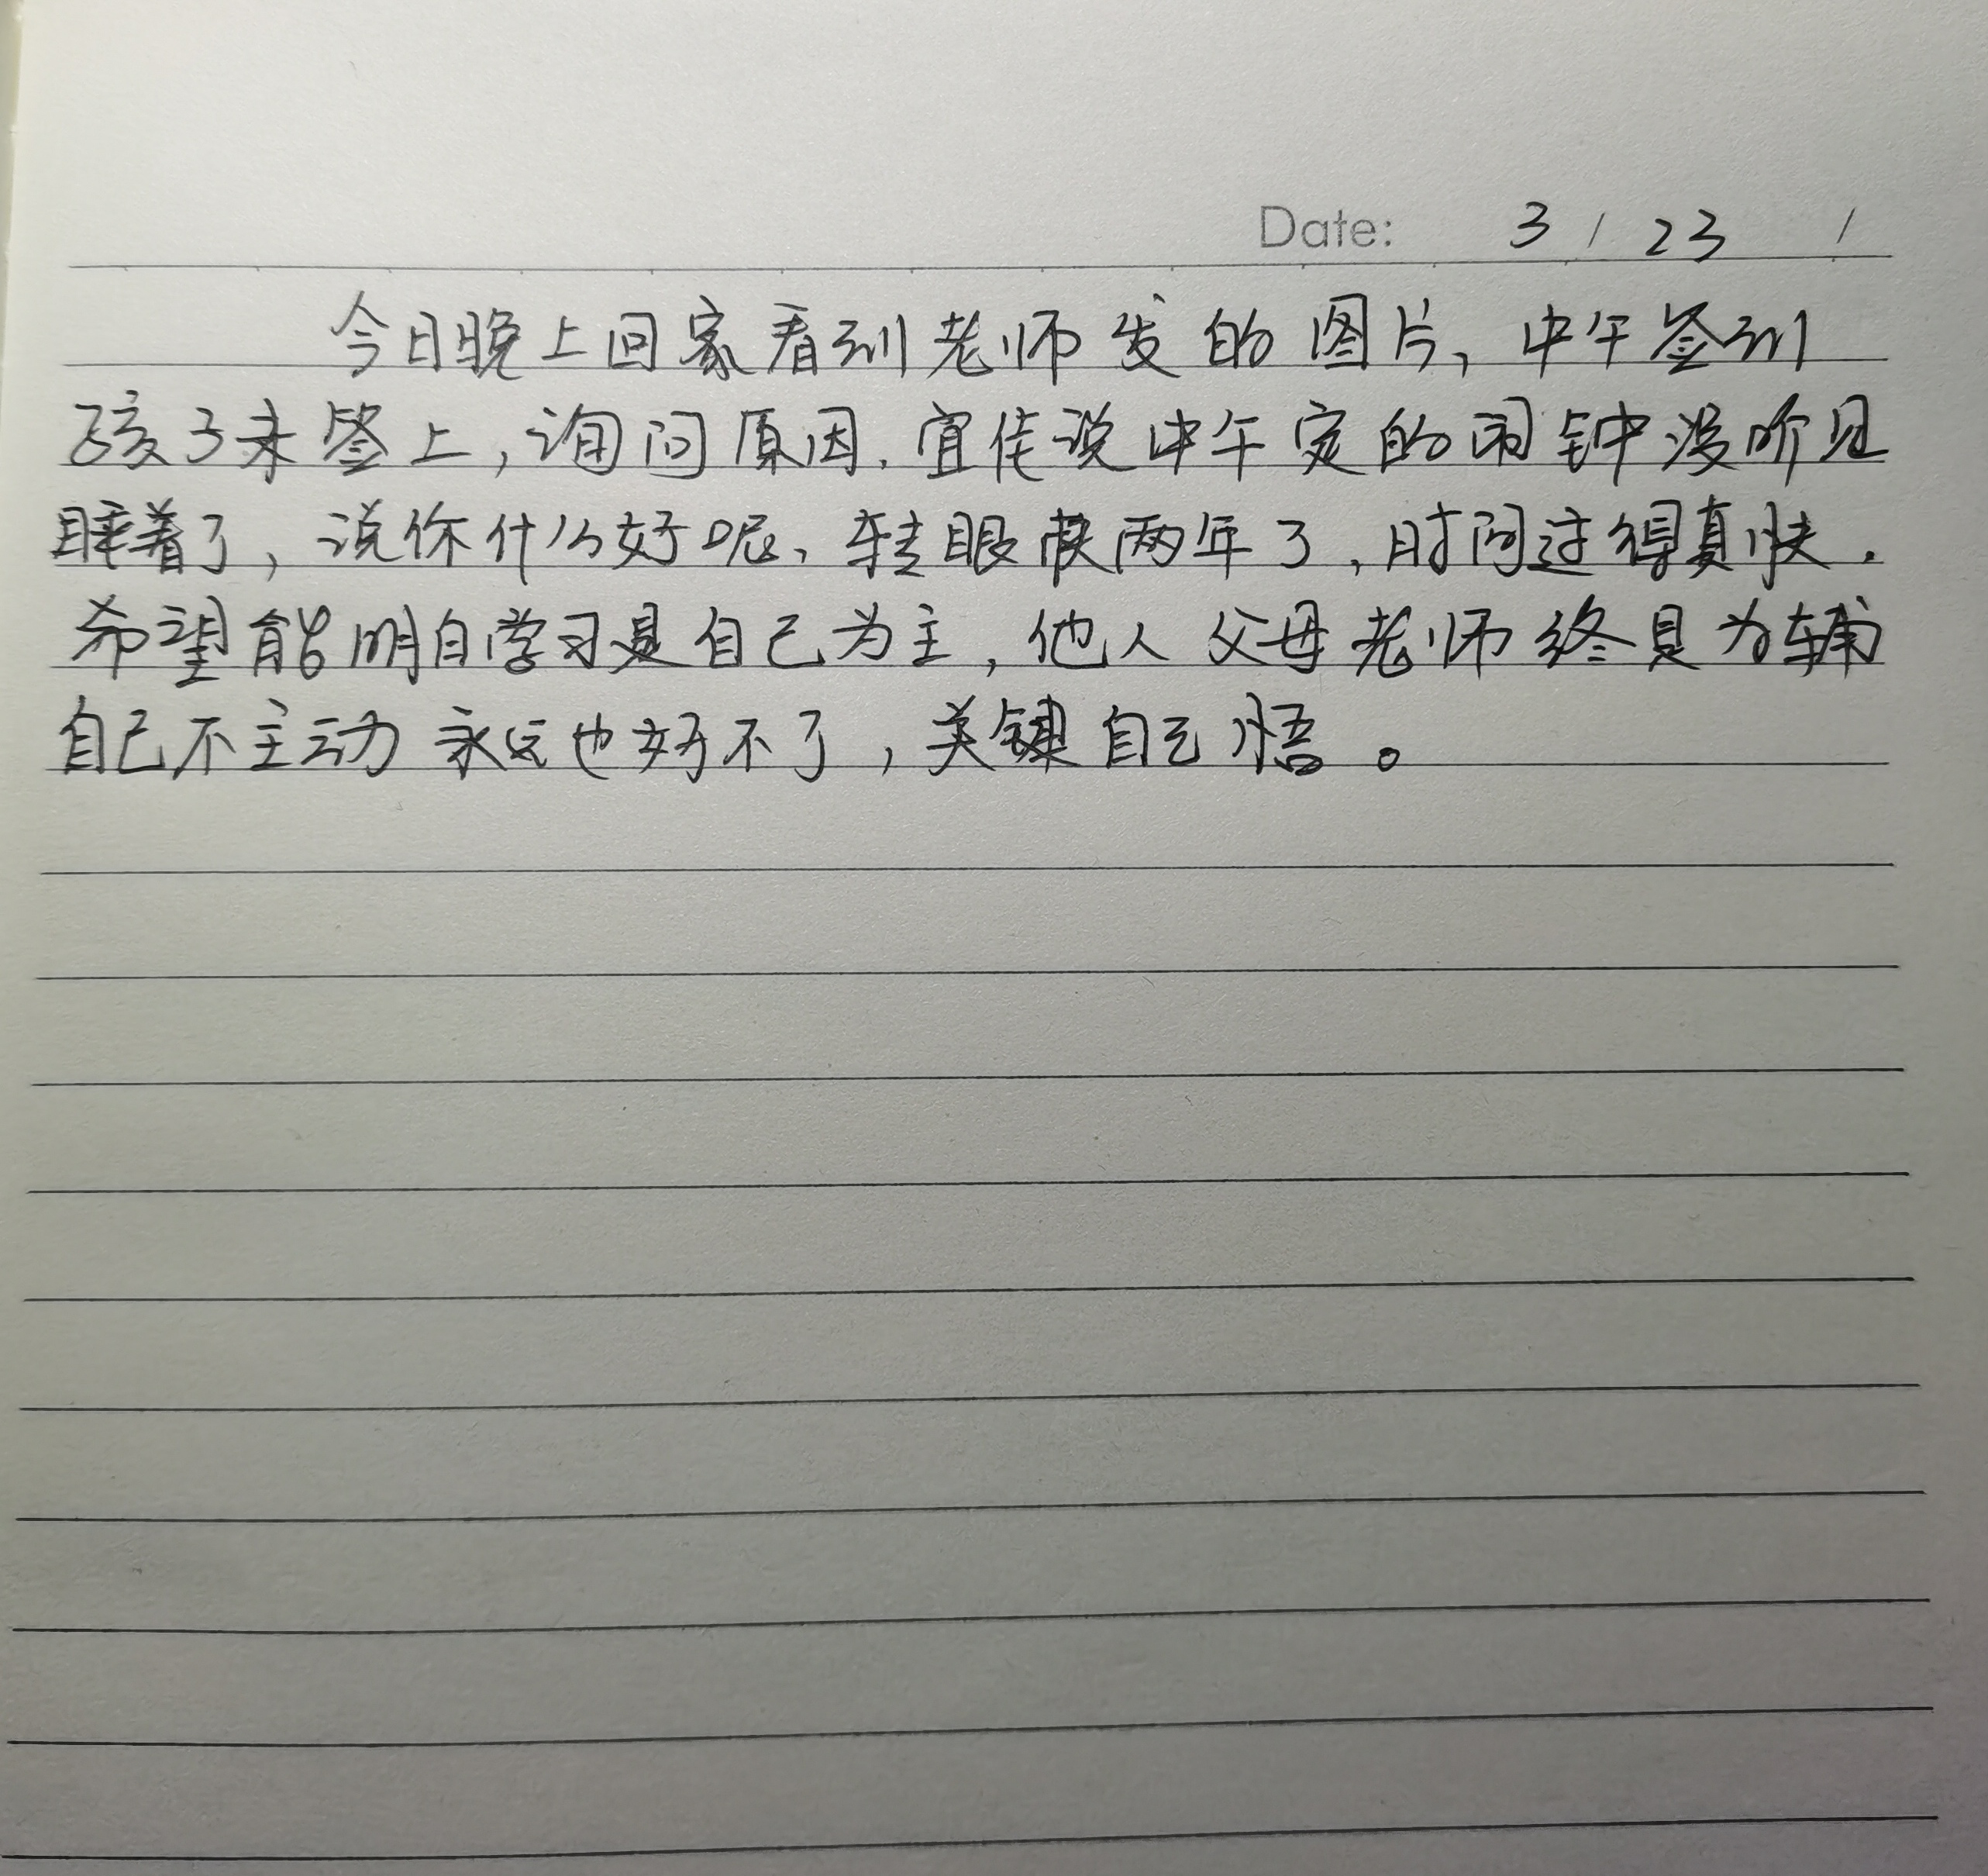 Date: 3 / 23 /
今日晚上回家看到老师发的图片，中午签到
孩子未签上，询问原因.宜佳说中午定的闹钟没听见
睡着了，说你什么好呢、转眼快两年了，时间过得真快.
希望能明白学习是自己为主，他人父母老师终是为辅
自己不主动永远也好不了，关键自己悟。